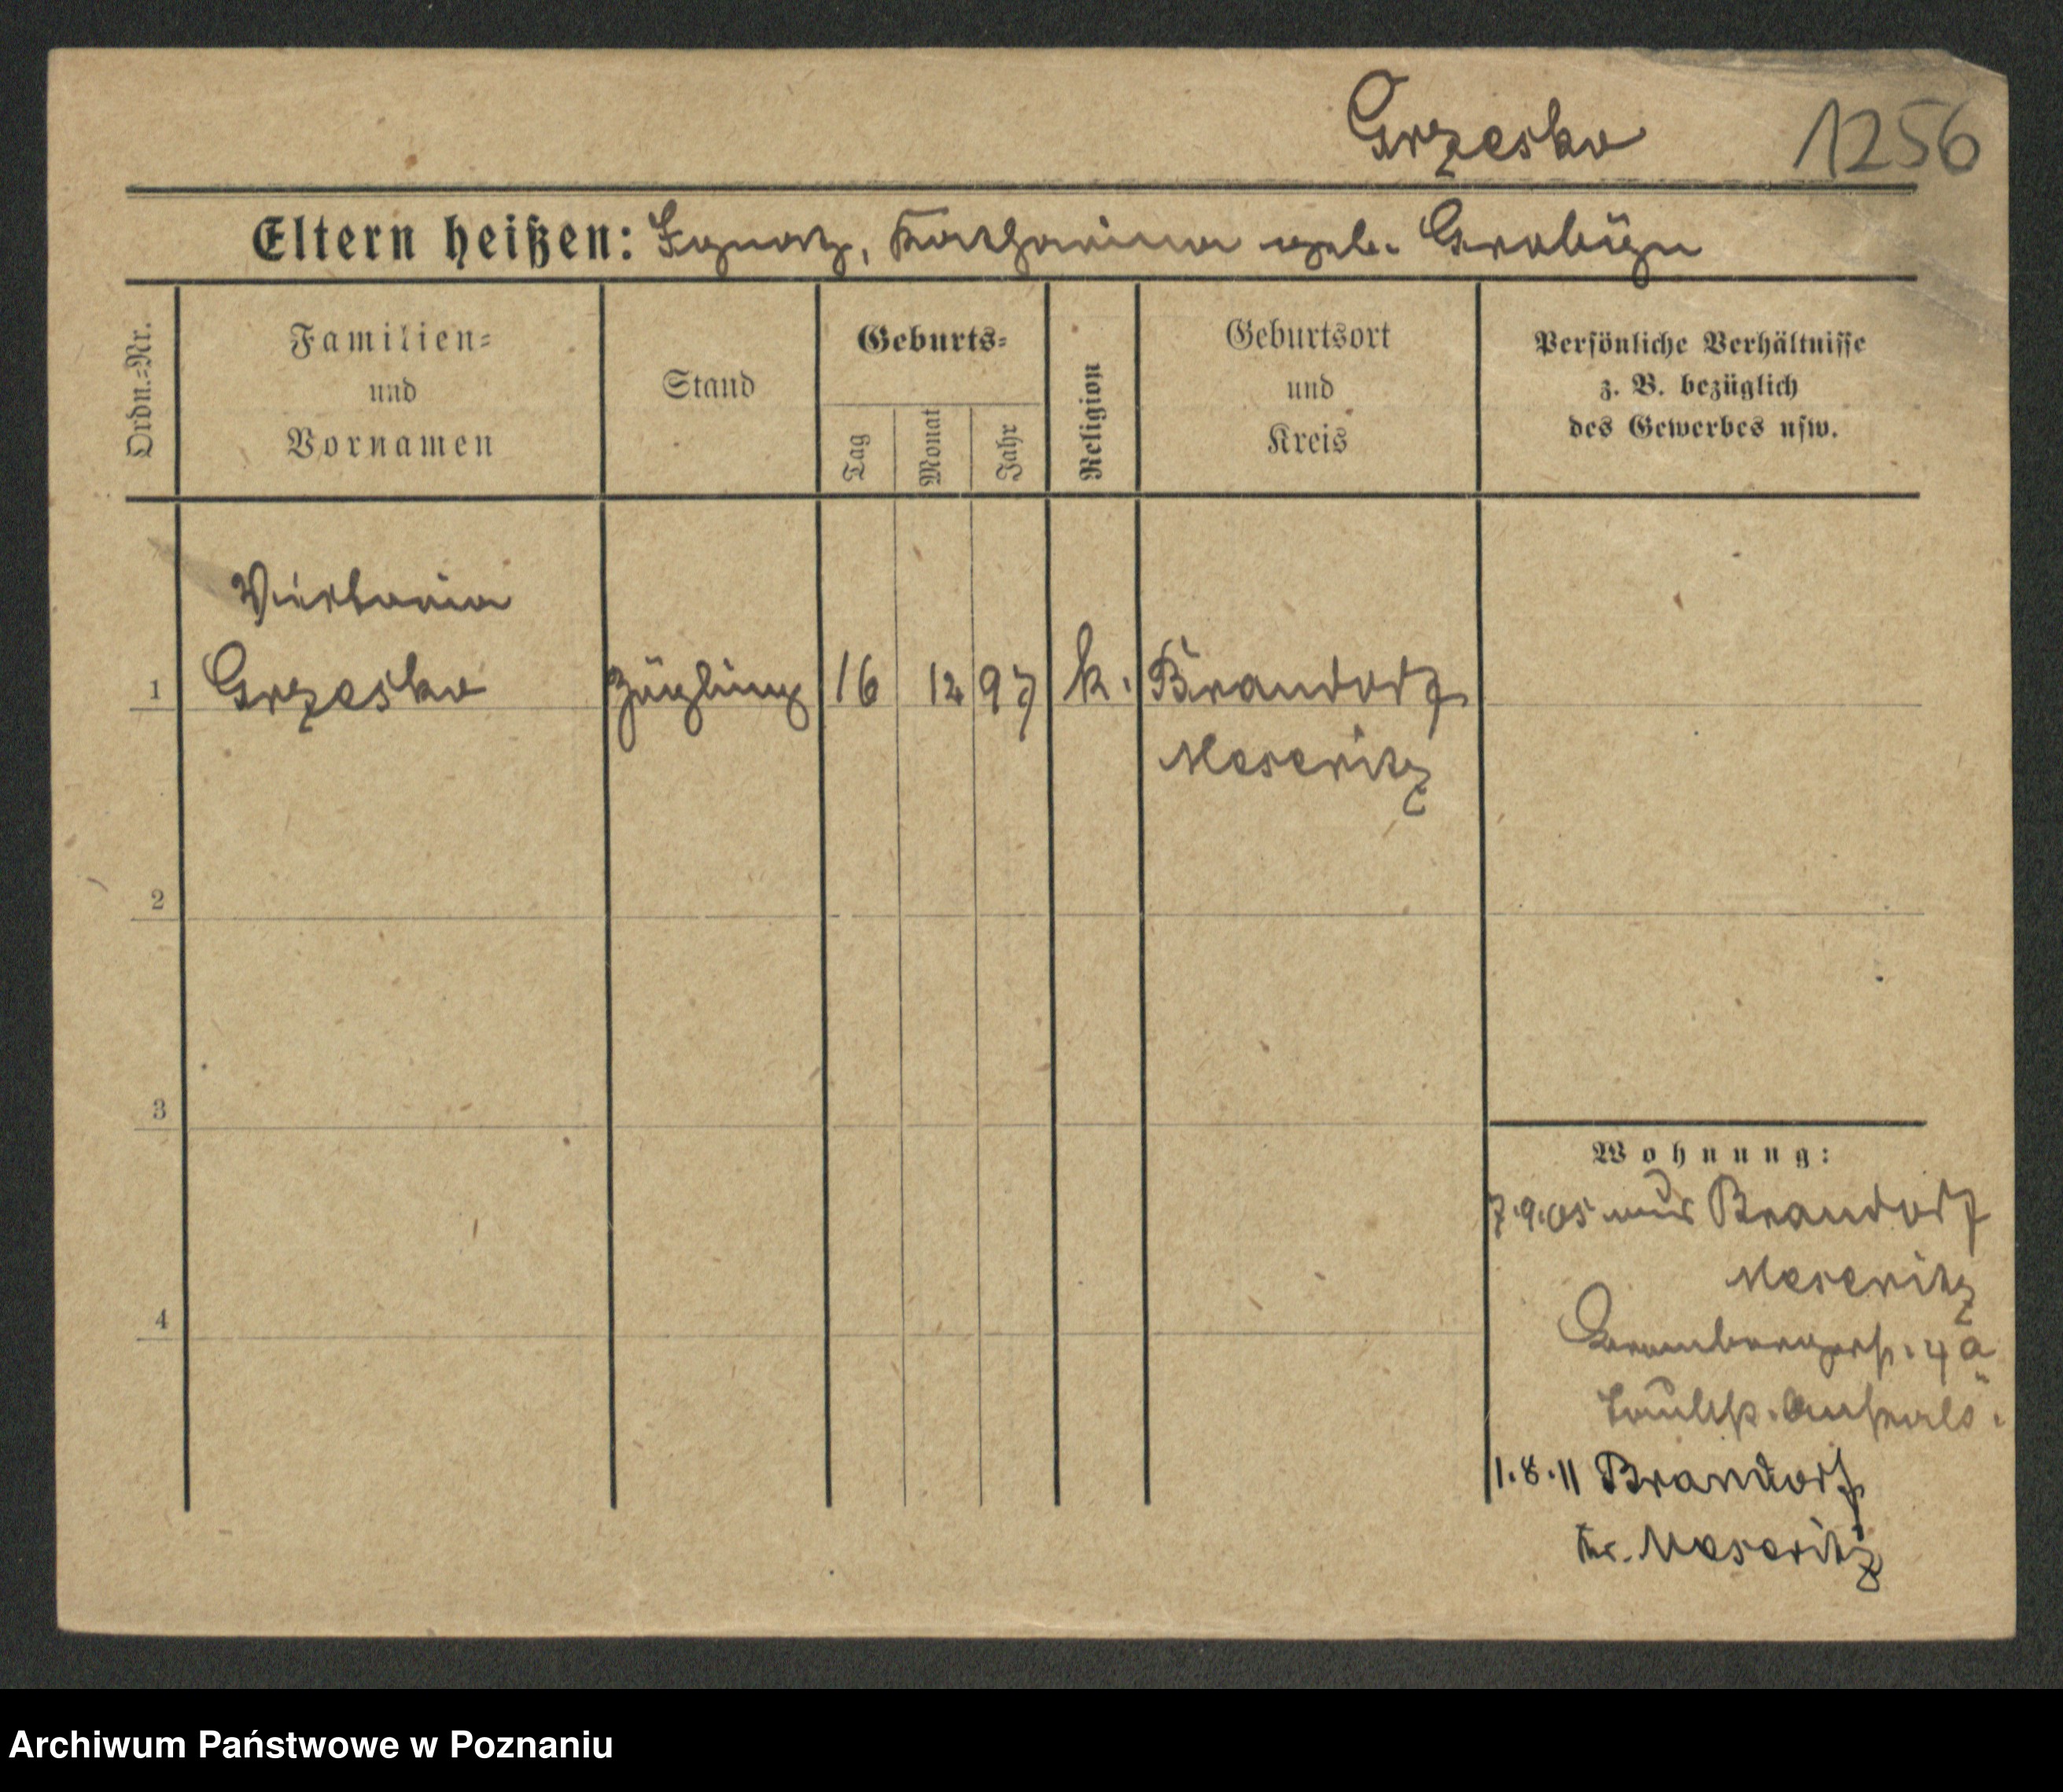 Grzesko 1256
Eltern heißen: Ignatz, Katharina geb.
Ordn.-Nr.
Familien-
und
Vornamen
Stand
Geburts-
Tag
Monat
Jahr
Religion
Geburtsort
und
Kreis
Persönliche Verhältnisse
z. B. bezüglich
des Gewerbes usw.
Viktoria
1 Grzesko Zögling 16 12 97 k. Brandorf
Meseritz
2
3
4
Wohnung:
7.9.05 aus Brandorf
Meseritz
4a
Taubst. Anstalt
1.8.11 Brandorf
Kr. Meseritz
Archiwum Państwowe w Poznaniu